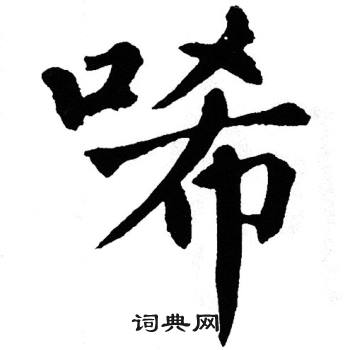 唏
词典网